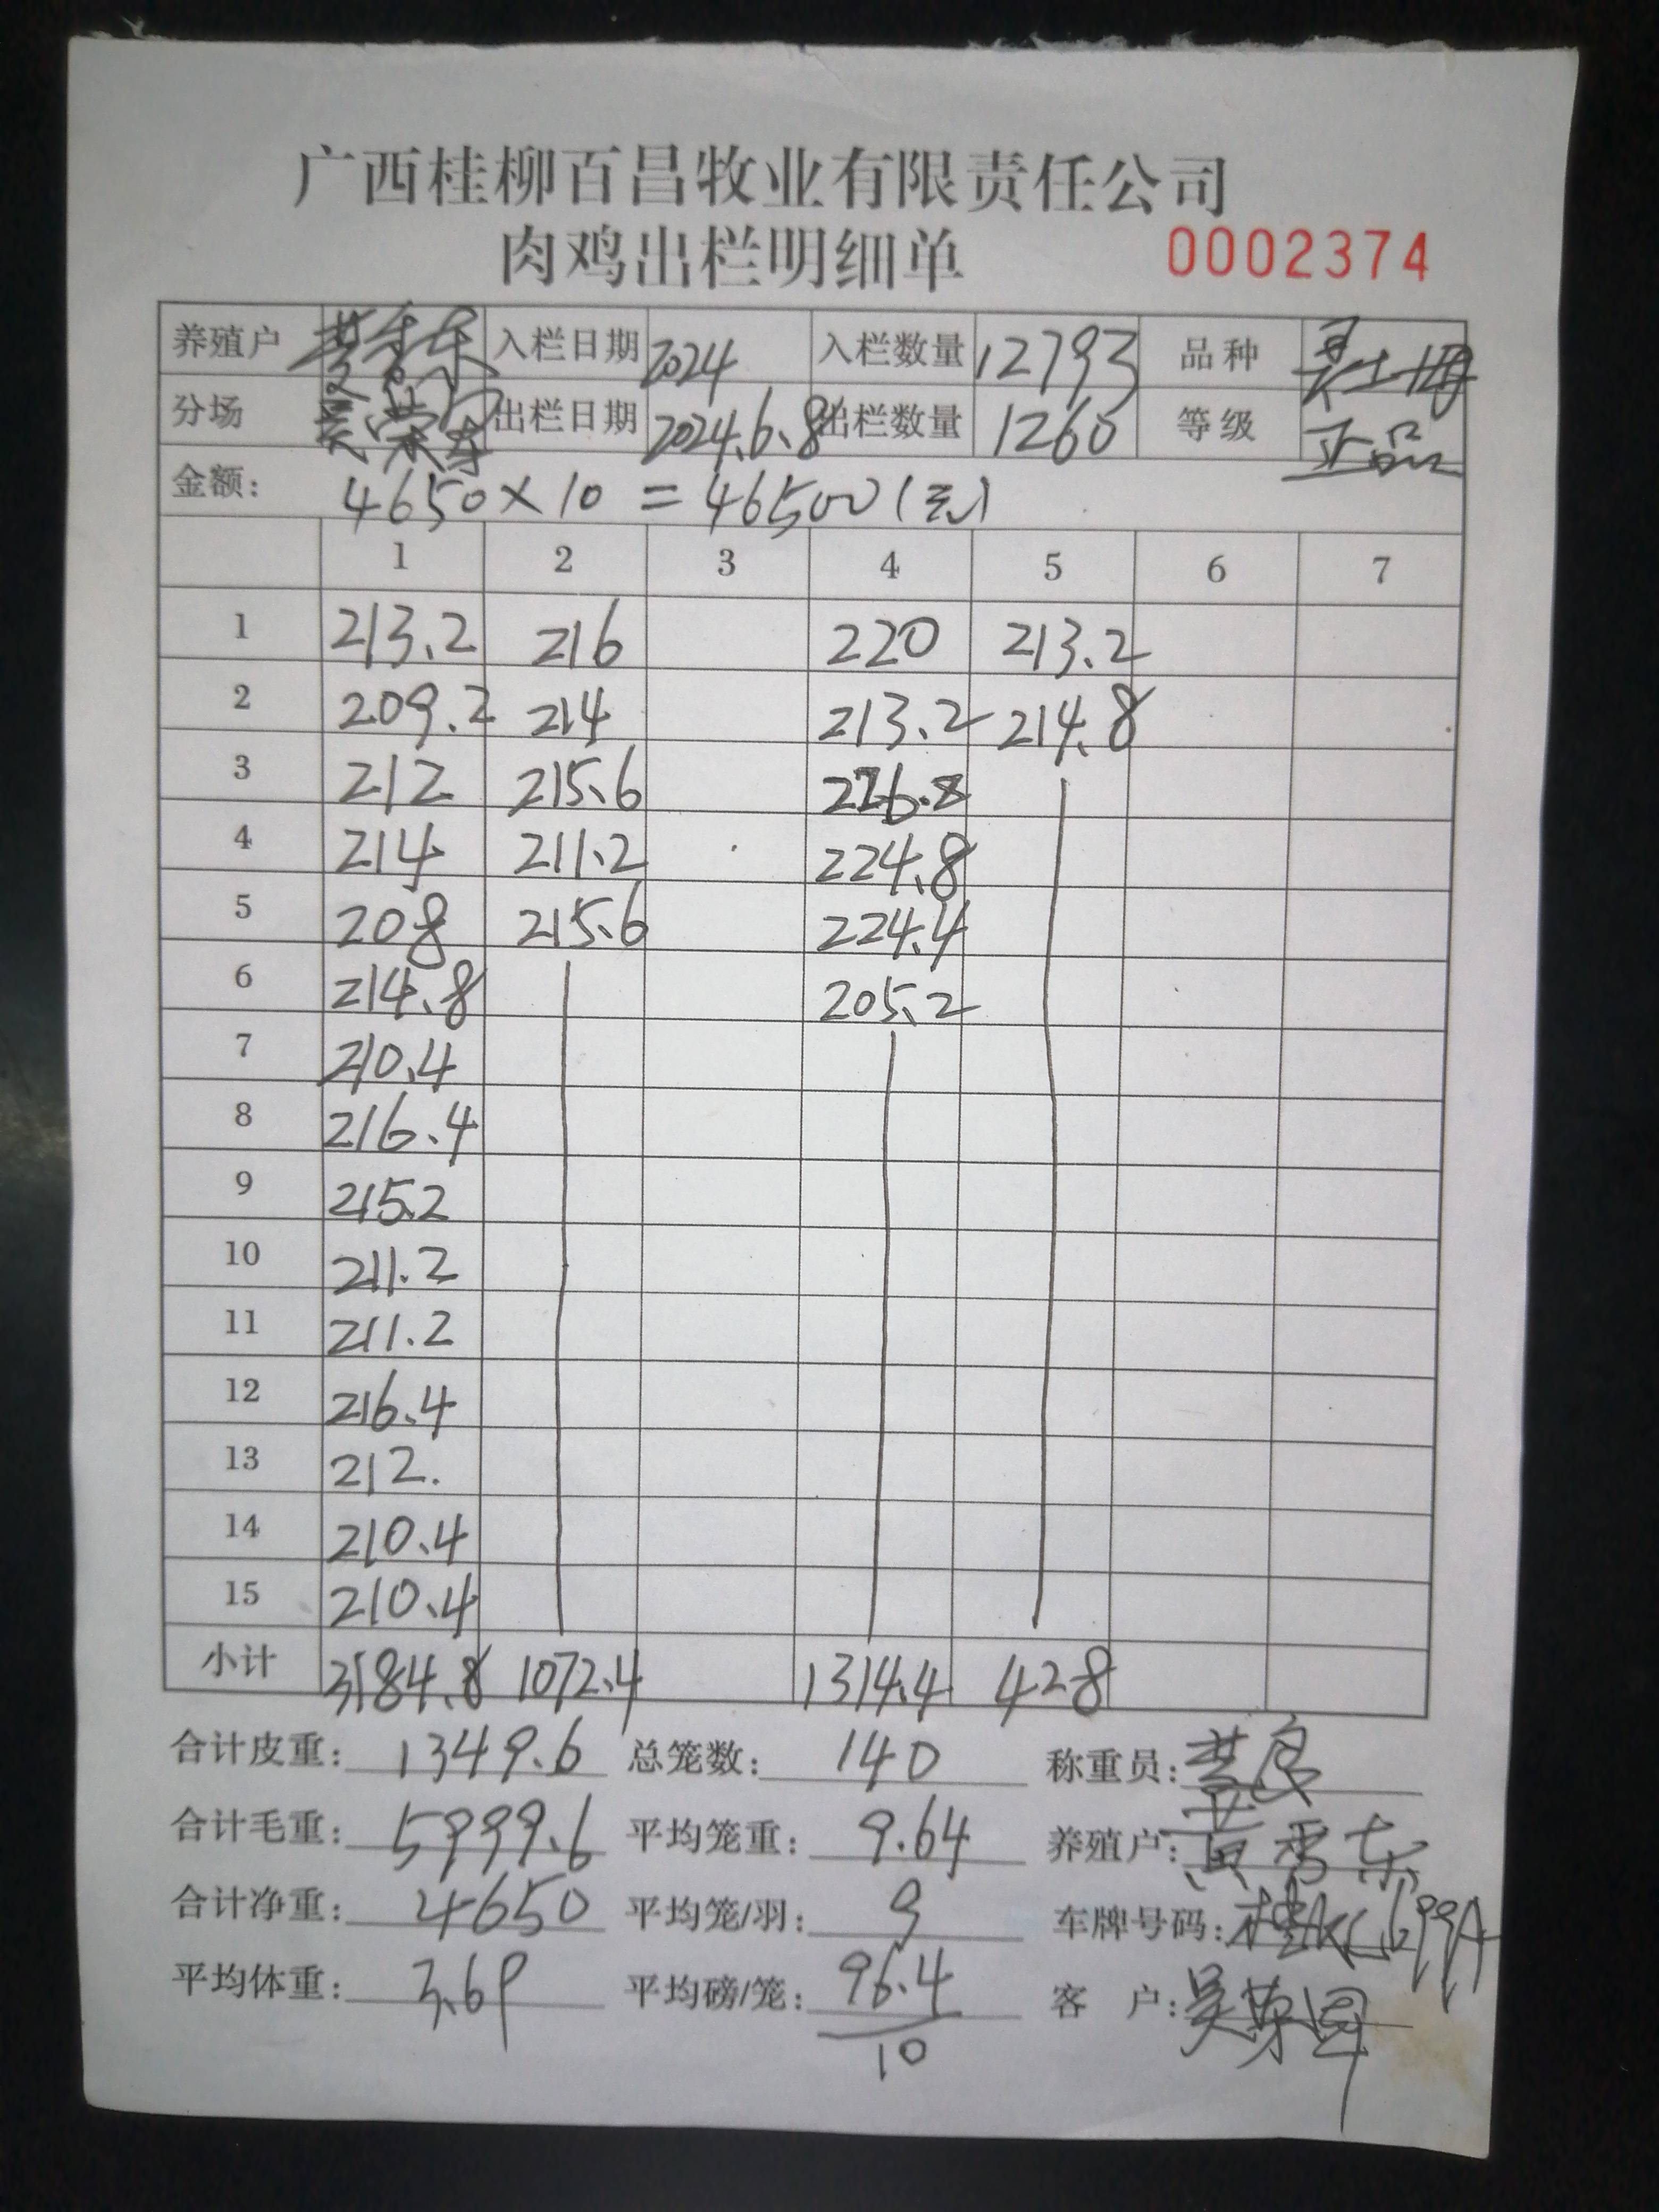 广西桂柳百昌牧业有限责任公司
肉鸡出栏明细单 0002374
养殖户 入栏日期 2024 入栏数量 12793 品种
分场 出栏日期 2024.6.8 出栏数量 1260 等级 正品
金额: 4650×10=46500(元)
1 2 3 4 5 6 7
1 213.2 216 220 213.2
2 209.2 214 213.2 214.8
3 212 215.6 226.8
4 214 211.2 224.8
5 208 215.6 224.4
6 214.8 205.2
7 210.4
8 216.4
9 215.2
10 211.2
11 211.2
12 216.4
13 212.
14 210.4
15 210.4
小计 3184.8 1072.4 1314.4 428
合计皮重: 1349.6 总笼数: 140 称重员:
合计毛重: 5999.6 平均笼重: 9.64 养殖户: 黄秀东
合计净重: 4650 平均笼/羽: 9 车牌号码:
平均体重: 3.69 平均磅/笼: 96.4 客 户: 吴荣国
10